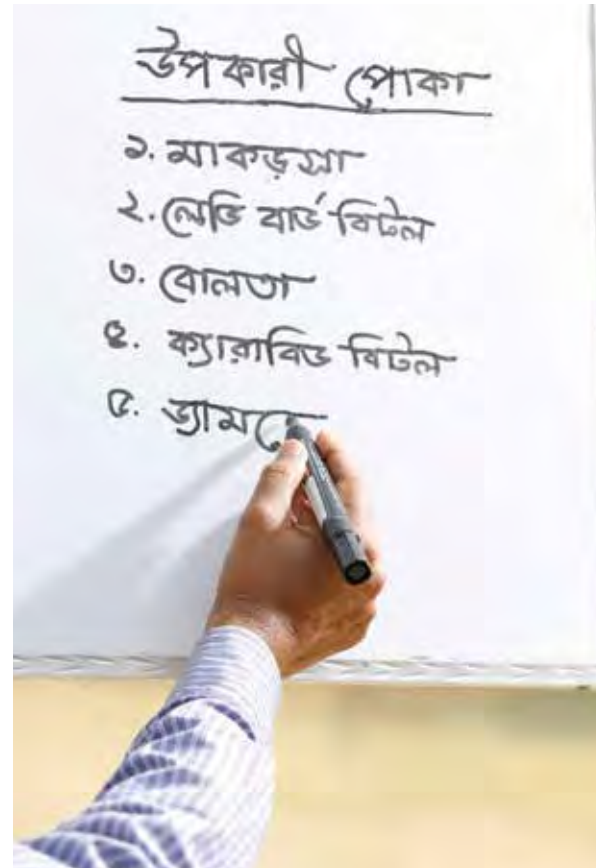 উপকারী পোকা
১. মাকড়সা
২. লেডি বার্ড বিটল
৩. বোলতা
৪. ক্যারাবিড বিটল
৫.